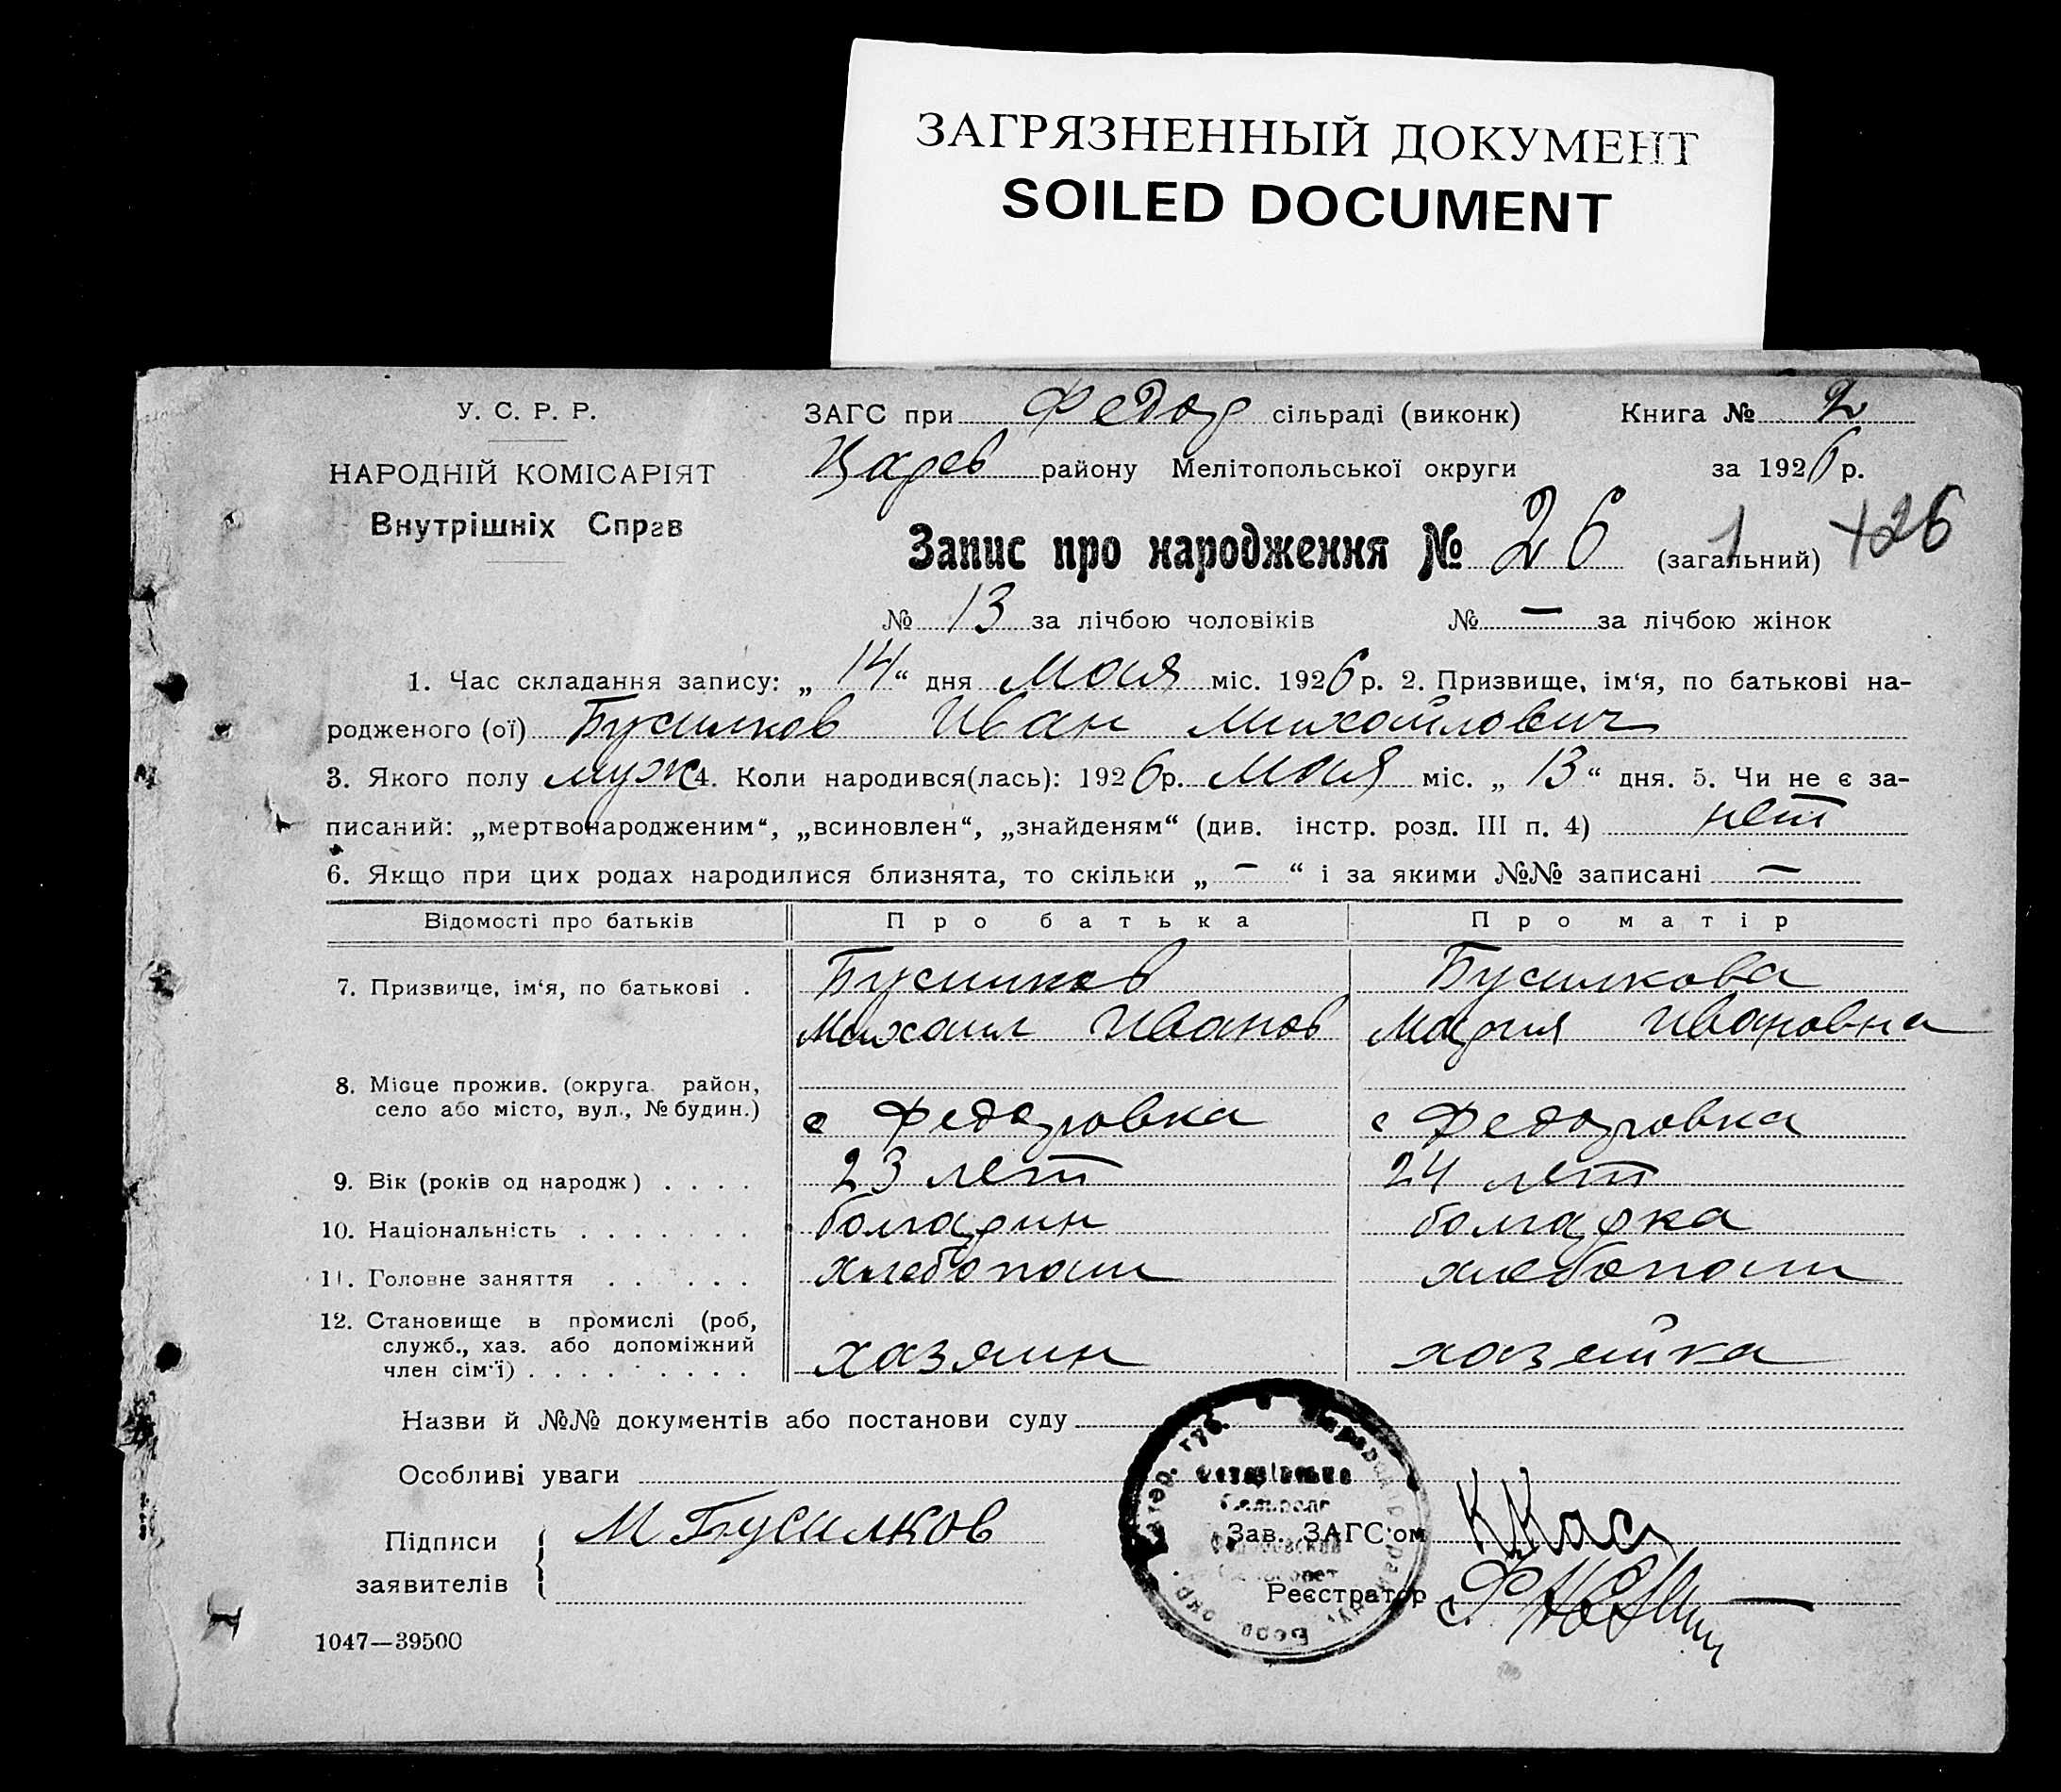 ЗАГРЯЗНЕННЫЙ ДОКУМЕНТ
SOILED DOCUMENT
У. С. Р. Р.
НАРОДНІЙ КОМІСАРІЯТ
Внутрішніх Справ
ЗАГС при Федор сільраді (виконк) Книга № 2
Царев району Мелітопольської округи за 1926 р.
Запис про народження № 26 (загальний) 1 +26
№ 13 за лічбою чоловіків № — за лічбою жінок
1. Час складання запису: „ 14 “ дня Мая міс. 1926 р. 2. Призвище, ім‘я, по батькові на-
родженого (ої) Бусилков Иван Михайлович
3. Якого полу муж 4. Коли народився(лась): 1926 р. Мая міс. „ 13 “ дня. 5. Чи не є за-
писаний: „мертвонародженим“, „всиновлен“, „знайденям“ (див. інстр. розд. III п. 4) нет
6. Якщо при цих родах народилися близнята, то скільки „ — “ і за якими №№ записані —
Відомості про батьків Про батька Про матір
7. Призвище, ім‘я, по батькові . Бусилков Бусилкова
Михаил Иванов Мария Ивановна
8. Місце прожив. (округа район,
село або місто, вул., № будин.) с Федоровка с Федоровка
9. Вік (років од народж) . . . . 23 лет 24 лет
10. Національність . . . . . . . болгарин болгарка
11. Головне заняття . . . . . . хлебопаш хлебопаш
12. Становище в промислі (роб,
служб., хаз. або допоміжний
член сім‘ї) . . . . . . . . . хазяин хазяйка
Назви й №№ документів або постанови суду
Особливі уваги
Підписи
заявителів М Бусилков
Зав. ЗАГС‘ом
Реєстратор
1047—39500